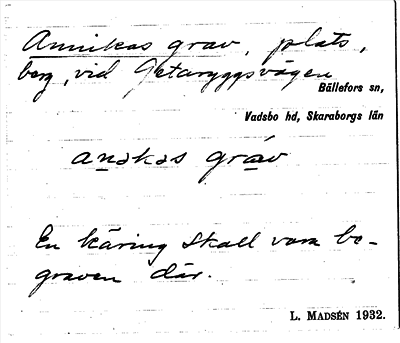 Annikas grav, plats,
berg, vid Getaryggsvägen
Bällefors sn,
Vadsbo hd, Skaraborgs län
anəkas gráv
En käring skall vara be-
graven där.
L. MADSÉN 1932.